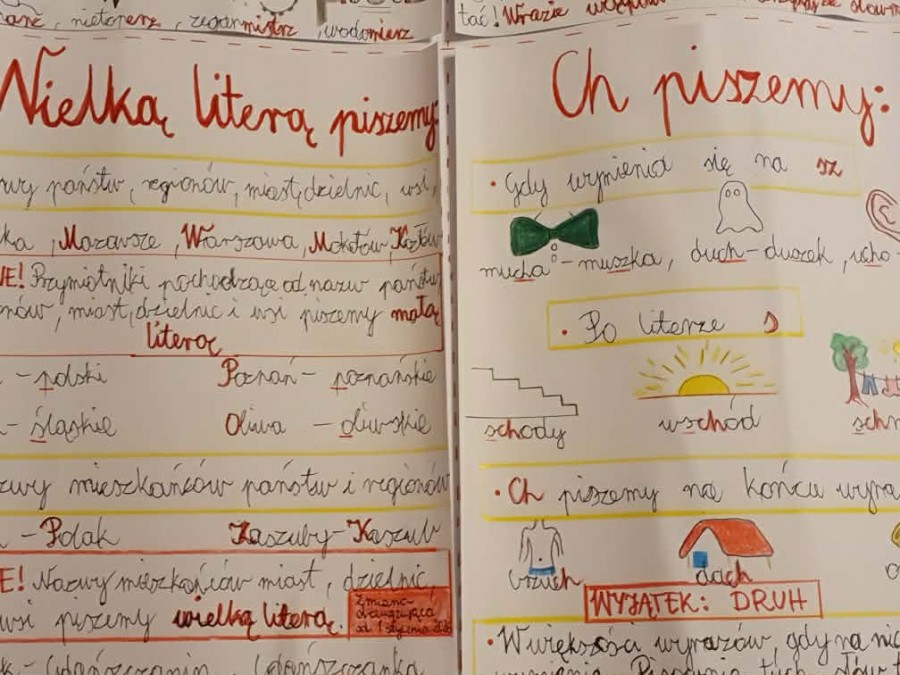 nietoperz, zegarmistrz, wodomierz
Wielką literą piszemy:
państw, regionów, miast, dzielnic, wsi,
Mazowsze, Warszawa, Mokotów,
Przymiotniki pochodzące od nazw państw
miast, dzielnic i wsi piszemy małą
literą
- polski Poznań - poznańskie
- śląskie Oliwa - oliwskie
mieszkańców państw i regionów
- Polak Kaszuby - Kaszub
Nazwy mieszkańców miast, dzielnic,
wsi piszemy wielką literą.
Zmiana
obowiązująca
od 1 stycznia
Gdańszczanin, Gdańszczanka
tać!
Ch piszemy:
• Gdy wymienia się na sz
mucha - muszka, duch - duszek, ucho -
• Po literze s
schody wschód
• Ch piszemy na końcu
brzuch dach
WYJĄTEK: DRUH
• W większości wyrazów, gdy na nic